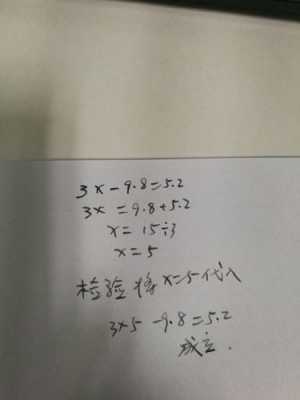 3x-9.8=5.2
3x =9.8+5.2
x= 15÷3
x=5
检验 将x=5代入
3×5 -9.8=5.2
成立.